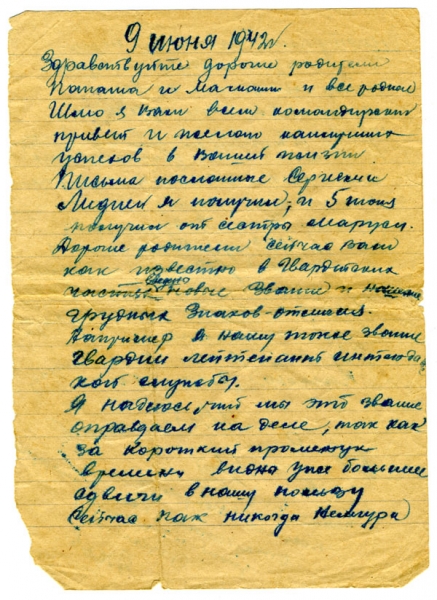 9 июня 1942г.
Здравствуйте дорогие родители
Папаша и Мамаша и все родные
Шлю я Вам всем командирский
привет и желаю наилучших
успехов в Вашей жизни
Письма посланные Сергеем и
Лидией я получил, и 5 июня
получил от сестры Маруси.
Дорогие родители сейчас Вам
как известно в Гвардейских
частях введено новое Звание и
грудных Знаков-отличия.
Например я ношу тоже звание
Гвардии лейтенант интендант
кой службы.
Я надеюсь, что мы это звание
оправдаем на деле, так как
за короткий промежуток
времени видна уже большие
сдвиги в нашу пользу
Сейчас как никогда